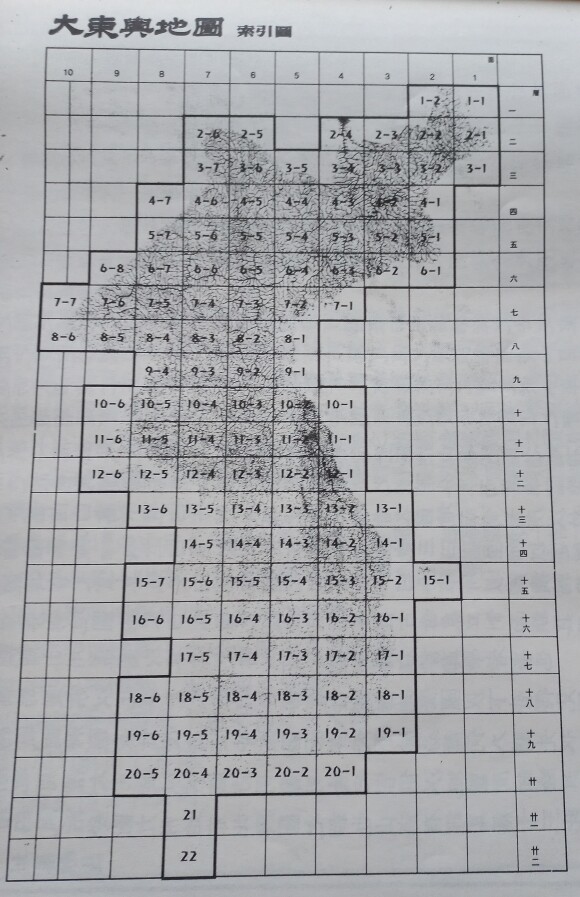 大東輿地圖 索引圖
面
10 9 8 7 6 5 4 3 2 1
層
1-2 1-1 一
2-6 2-5 2-4 2-3 2-2 2-1 二
3-7 3-6 3-5 3-4 3-3 3-2 3-1 三
4-7 4-6 4-5 4-4 4-3 4-2 4-1 四
5-7 5-6 5-5 5-4 5-3 5-2 5-1 五
6-8 6-7 6-6 6-5 6-4 6-3 6-2 6-1 六
7-7 7-6 7-5 7-4 7-3 7-2 7-1 七
8-6 8-5 8-4 8-3 8-2 8-1 八
9-4 9-3 9-2 9-1 九
10-6 10-5 10-4 10-3 10-2 10-1 十
11-6 11-5 11-4 11-3 11-2 11-1 十一
12-6 12-5 12-4 12-3 12-2 12-1 十二
13-6 13-5 13-4 13-3 13-2 13-1 十三
14-5 14-4 14-3 14-2 14-1 十四
15-7 15-6 15-5 15-4 15-3 15-2 15-1 十五
16-6 16-5 16-4 16-3 16-2 16-1 十六
17-5 17-4 17-3 17-2 17-1 十七
18-6 18-5 18-4 18-3 18-2 18-1 十八
19-6 19-5 19-4 19-3 19-2 19-1 十九
20-5 20-4 20-3 20-2 20-1 廿
21 廿一
22 廿二